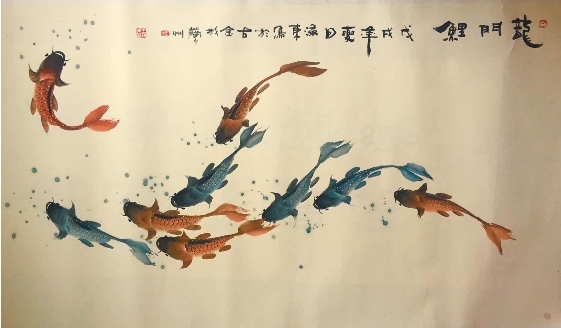 龍門鯉 戊戌年夏日東寫於古金城蘭州